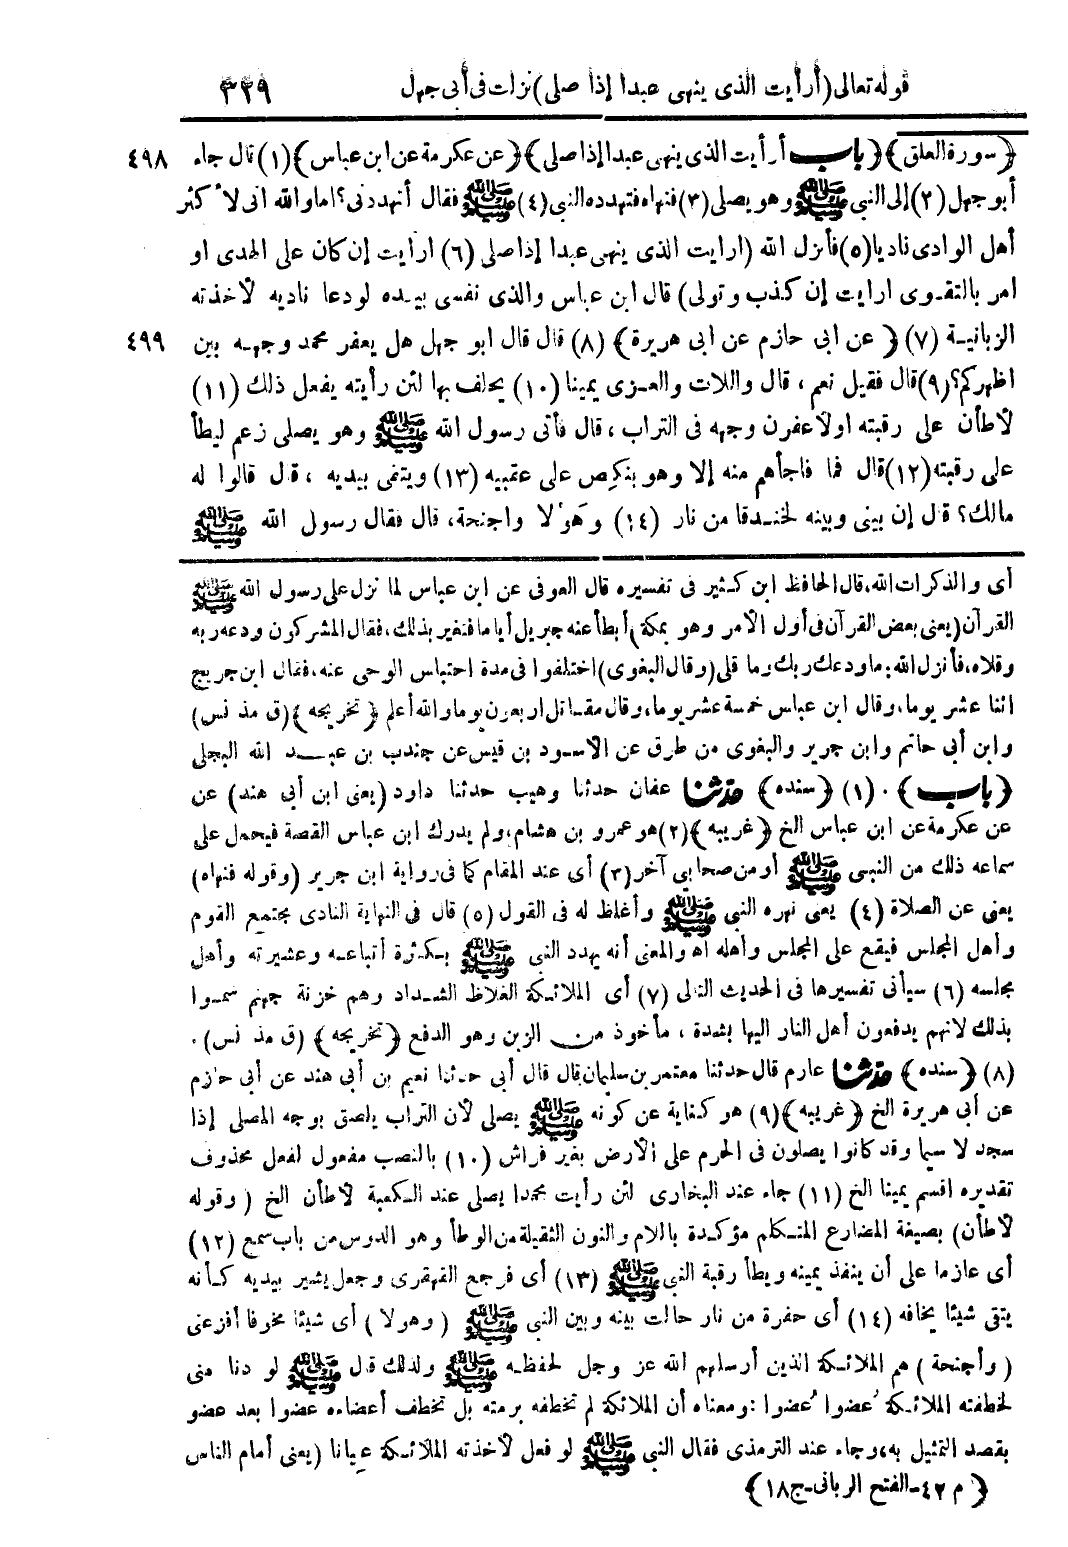 قوله تعالى (أرأيت الذى ينهى عبدا إذا صلى) نزلت فى أبى جهل ٣٢٩
﴿سورة العلق﴾ ﴿باب أرأيت الذى ينهى عبدا إذا صلى﴾ ﴿عن عكرمة عن ابن عباس﴾ (١) قال جاء ٤٩٨
أبو جهل (٢) إلى النبى ﷺ وهو يصلى (٣) فنهاه فتهدده النبى (٤) ﷺ فقال أتهددنى؟ اما والله انى لأكثر
أهل الوادى ناديا (٥) فأنزل الله (ارايت الذى ينهى عبدا إذا صلى (٦) ارايت إن كان على الهدى او
امر بالتقوى ارايت إن كذب وتولى) قال ابن عباس والذى نفسى بيده لو دعا ناديه لأخذته
الزبانية (٧) ﴿عن ابى حازم عن ابى هريرة﴾ (٨) قال قال ابو جهل هل يعفر محمد وجهه بين ٤٩٩
اظهركم؟ (٩) قال فقيل نعم، قال واللات والعزى يمينا (١٠) يحلف بها لئن رأيته يفعل ذلك (١١)
لأطأن على رقبته او لأعفرن وجهه فى التراب، قال فأتى رسول الله ﷺ وهو يصلى زعم ليطأ
على رقبته (١٢) قال فما فاجأهم منه إلا وهو ينكص على عقبيه (١٣) ويتقى بيديه، قال قالوا له
مالك؟ قال إن بينى وبينه لخندقا من نار (١٤) وهَوْلا واجنحة، قال فقال رسول الله ﷺ
أى والذكرات الله، قال الحافظ ابن كثير فى تفسيره قال العوفى عن ابن عباس لما نزل على رسول الله ﷺ
القرآن (يعنى بعض القرآن فى أول الأمر وهو بمكة) أبطأ عنه جبريل أياما فتغير بذلك، فقال المشركون ودعه ربه
وقلاه، فأنزل الله: ما ودعك ربك وما قلى (وقال البغوى) اختلفوا فى مدة احتباس الوحى عنه، فقال ابن جريج
اثنا عشر يوما، وقال ابن عباس خمسة عشر يوما، وقال مقاتل اربعون يوما والله أعلم ﴿تخريجه﴾ (ق مذ نس)
وابن أبى حاتم وابن جرير والبغوى من طرق عن الأسود بن قيس عن جندب بن عبد الله البجلى
﴿باب﴾. (١) ﴿سنده﴾ حدثنا عفان حدثنا وهيب حدثنا داود (يعنى ابن أبى هند) عن
عن عكرمة عن ابن عباس الخ ﴿غريبه﴾ (٢) هو عمرو بن هشام، ولم يدرك ابن عباس القصة فيحمل على
سماعه ذلك من النبى ﷺ أو من صحابى آخر (٣) أى عند المقام كما فى رواية ابن جرير (وقوله فنهاه)
يعنى عن الصلاة (٤) يعنى نهره النبى ﷺ وأغلظ له فى القول (٥) قال فى النهاية النادى مجتمع القوم
وأهل المجلس فيقع على المجلس وأهله اه والمعنى أنه يهدد النبى ﷺ بكثرة أتباعه وعشيرته وأهل
مجلسه (٦) سيأتى تفسيرها فى الحديث التالى (٧) أى الملائكة الغلاظ الشداد وهم خزنة جهنم سموا
بذلك لأنهم يدفعون أهل النار اليها بشدة، مأخوذ من الزبن وهو الدفع ﴿تخريجه﴾ (ق مذ نس).
(٨) ﴿سنده﴾ حدثنا عارم قال حدثنا معتمر بن سليمان قال قال أبى حدثنا نعيم بن أبى هند عن أبى حازم
عن أبى هريرة الخ ﴿غريبه﴾ (٩) هو كناية عن كونه ﷺ يصلى لأن التراب يلصق بوجه المصلى إذا
سجد لا سيما وقد كانوا يصلون فى الحرم على الأرض بغير فراش (١٠) بالنصب مفعول لفعل محذوف
تقديره اقسم يمينا الخ (١١) جاء عند البخارى لئن رأيت محمدا يصلى عند الكعبة لأطأن الخ (وقوله
لأطأن) بصيغة المضارع المتكلم مؤكدة باللام والنون الثقيلة من الوطأ وهو الدوس من باب سمع (١٢)
أى عازما على أن ينفذ يمينه ويطأ رقبة النبى ﷺ (١٣) أى فرجع القهقرى وجعل يشير بيديه كأنه
يتقى شيئا يخافه (١٤) أى حفرة من نار حالت بينه وبين النبى ﷺ (وهولا) أى شيئا مخوفا أفزعنى
(وأجنحة) هم الملائكة الذين أرسلهم الله عز وجل لحفظه ﷺ ولذلك قال ﷺ لو دنا منى
لخطفته الملائكة عُضوا عُضوا: ومعناه أن الملائكة لم تخطفه برمته بل تخطف أعضاءه عضوا بعد عضو
بقصد التمثيل به، وجاء عند الترمذى فقال النبى ﷺ لو فعل لأخذته الملائكة عيانا (يعنى أمام الناس
﴿م ٤٢ - الفتح الربانى - ج ١٨﴾